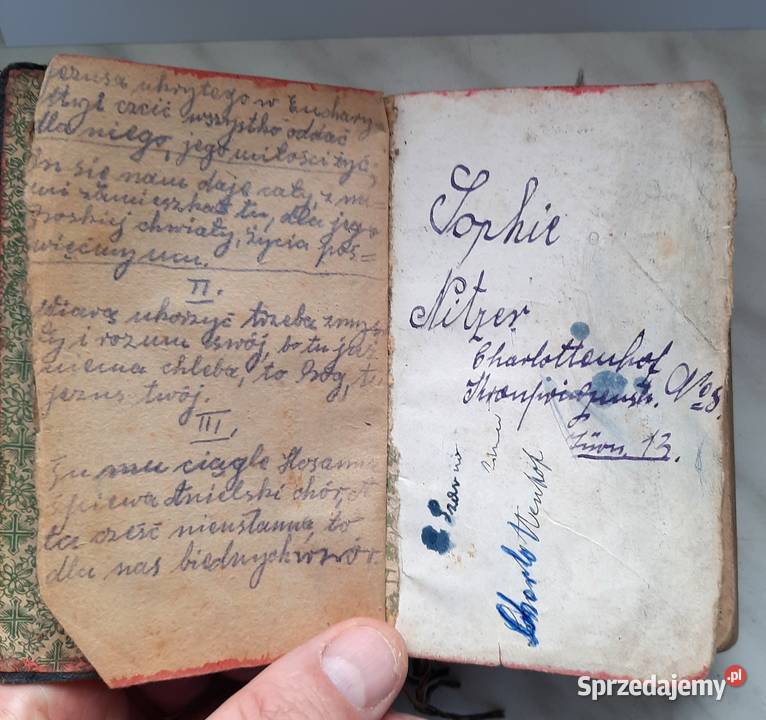 Jezusa ukrytego w Euchary-
styi czcić wszystko oddać
dla niego, jego miłości żyć,
On się nam daje cały, z na
mi zamieszkał tu, dla jego
Boskiej chwały, życia poś-
więćmy mu.
II.
Wiarą ukorzyć trzeba zmys
ły i rozum swój, bo tu już
niema chleba, to Bóg, to
jezus twój.
III,
Tu mu ciągle Hosanna
śpiewa Anielski chór, A
ta cześć nieustanna, to
dla nas biednych wzór.
Sophie
Nitzer
Charlottenhof
Kronprinzenstr. No 8.
Türn 13.
Charlottenhof
Sprzedajemy.pl